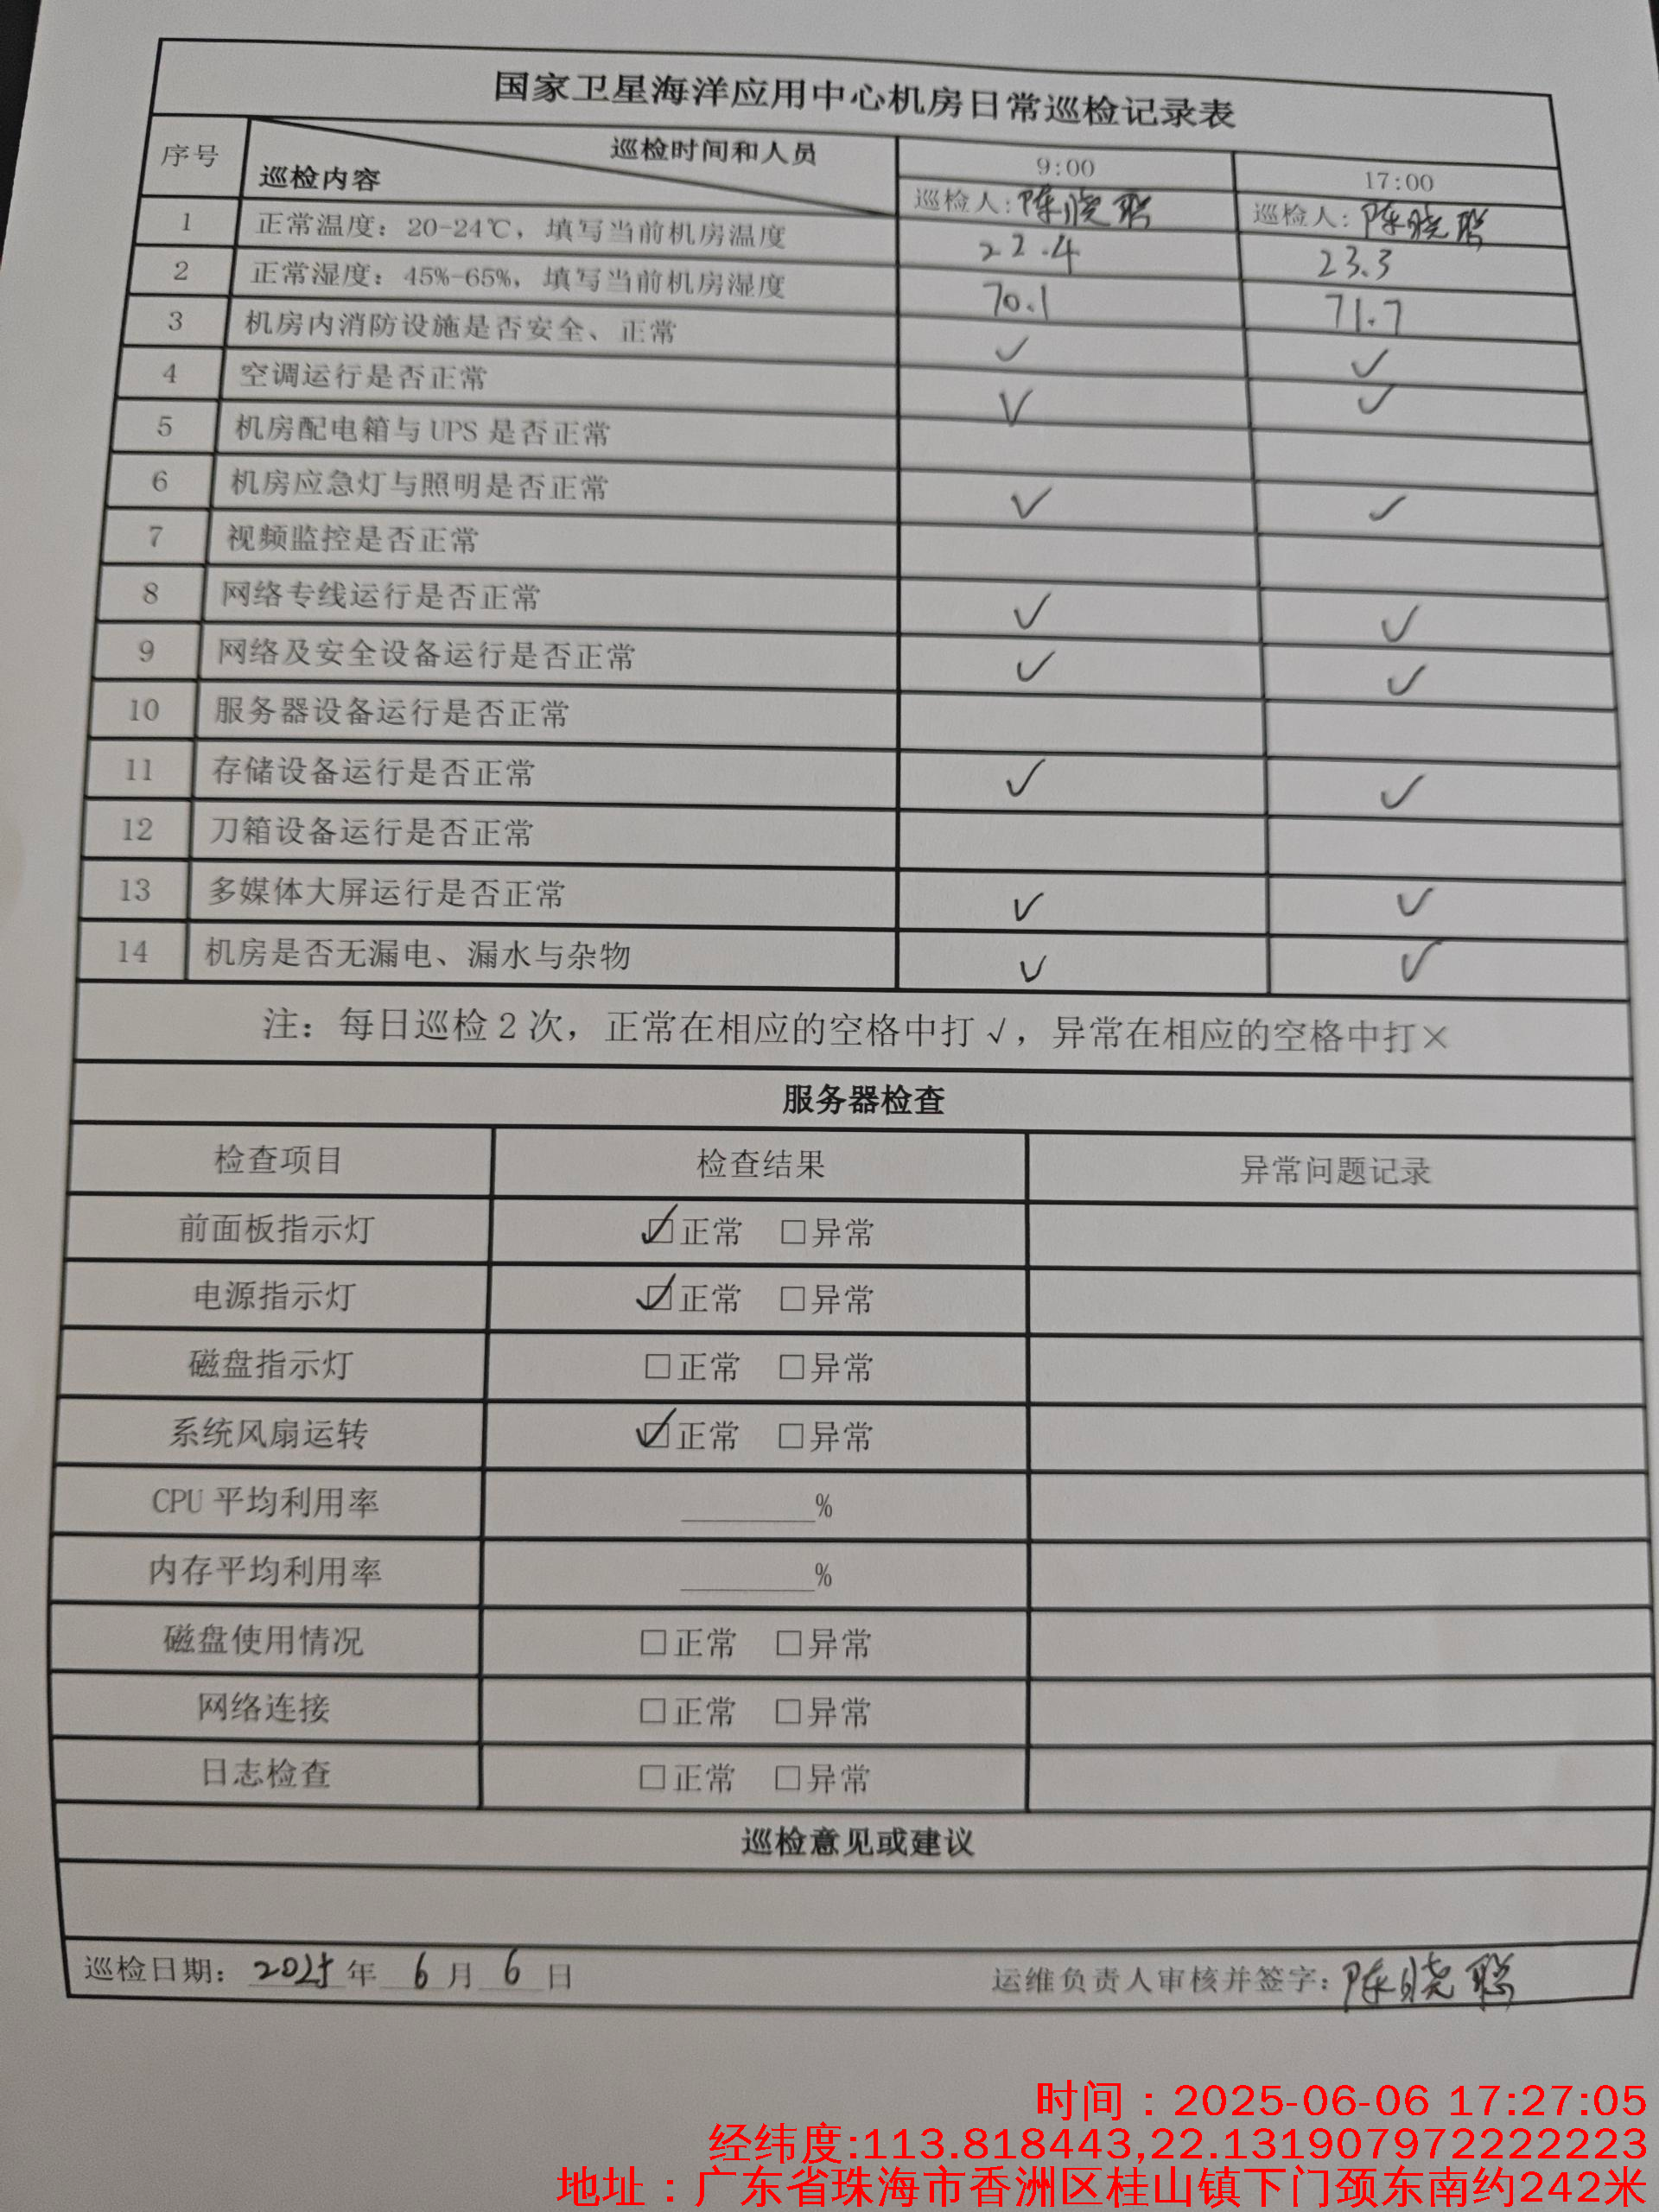 国家卫星海洋应用中心机房日常巡检记录表
序号 巡检时间和人员 巡检内容 9:00 17:00
巡检人:陈晓聪 巡检人:陈晓聪
1 正常温度：20-24℃，填写当前机房温度 22.4 23.3
2 正常湿度：45%-65%，填写当前机房湿度 70.1 71.7
3 机房内消防设施是否安全、正常 ✓ ✓
4 空调运行是否正常 ✓ ✓
5 机房配电箱与 UPS 是否正常
6 机房应急灯与照明是否正常 ✓ ✓
7 视频监控是否正常
8 网络专线运行是否正常 ✓ ✓
9 网络及安全设备运行是否正常 ✓ ✓
10 服务器设备运行是否正常
11 存储设备运行是否正常 ✓ ✓
12 刀箱设备运行是否正常
13 多媒体大屏运行是否正常 ✓ ✓
14 机房是否无漏电、漏水与杂物 ✓ ✓
注：每日巡检 2 次，正常在相应的空格中打 √，异常在相应的空格中打×
服务器检查
检查项目 检查结果 异常问题记录
前面板指示灯 ☑正常 □异常
电源指示灯 ☑正常 □异常
磁盘指示灯 □正常 □异常
系统风扇运转 ☑正常 □异常
CPU 平均利用率 ________%
内存平均利用率 ________%
磁盘使用情况 □正常 □异常
网络连接 □正常 □异常
日志检查 □正常 □异常
巡检意见或建议
巡检日期：2025年 6 月 6 日 运维负责人审核并签字：陈晓聪
时间：2025-06-06 17:27:05
经纬度:113.818443,22.131907972222223
地址：广东省珠海市香洲区桂山镇下门颈东南约242米